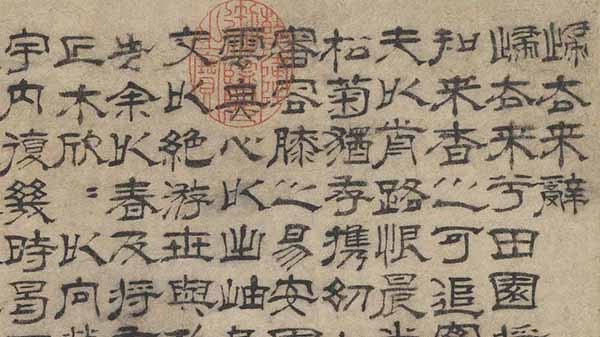 歸去来辭
歸去来兮田園將
知来者之可追
夫以前路恨晨
松菊猶存携幼
審容膝之易安
雲無心以出岫
交以絶游世與
告余以春及將
丘木欣〻以向
宇内復幾時曷